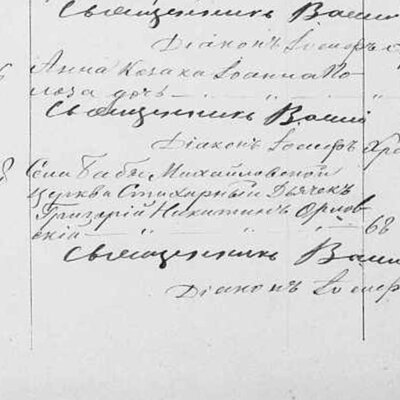 Священникъ Васи
Діаконъ Іосифъ
Анна Козака Іоанна По
лоза дочь
Священникъ Васи
Діаконъ Іосифъ Хра
8 Села Бабы Михайловской
церкви Стихарный Дьячекъ
Григорій Никитинъ Орлов
скій 68
Священникъ Васи
Діаконъ Іосиф